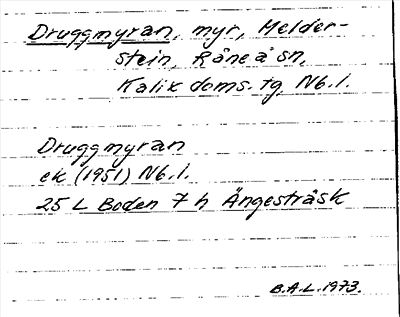 Druggmyran, myr, Melder-
stein, Råneå sn,
Kalix doms. tg Nb.l.
Druggmyran
ek (1951) Nb.l.
25 L Boden 7 h Ängesträsk
B.A.L. 1973.